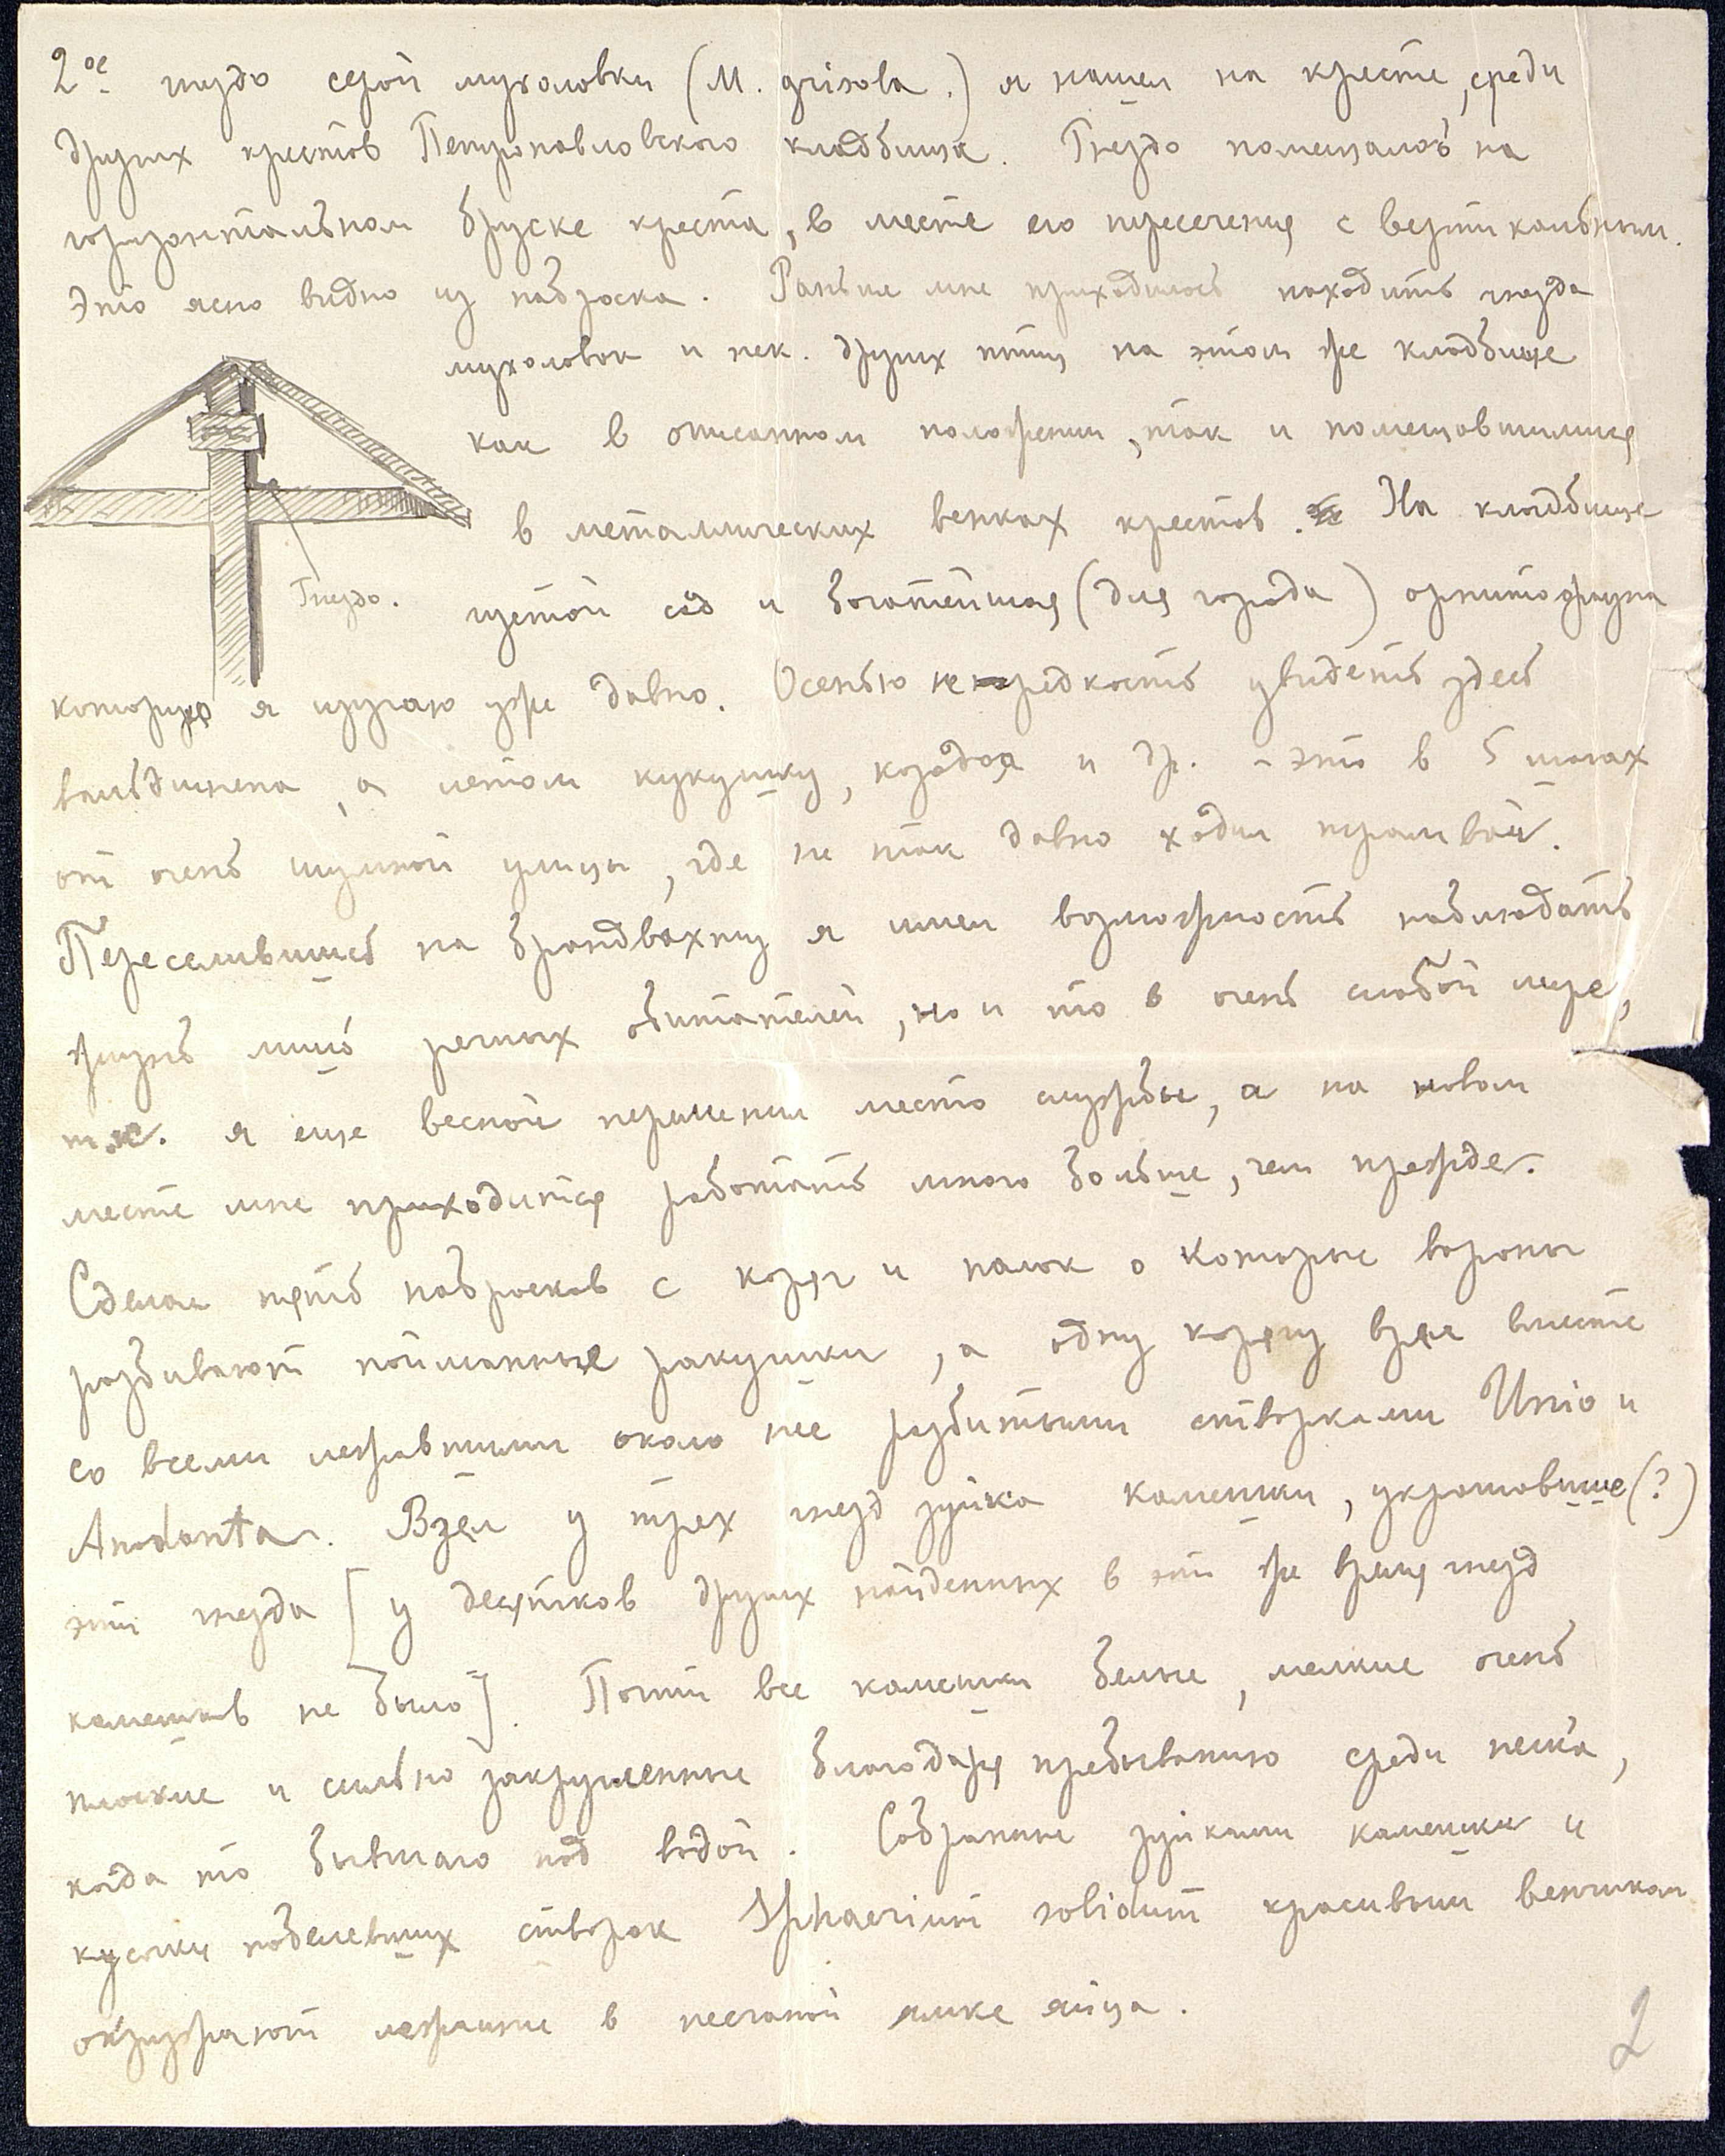 2ое гнездо серой мухоловки (M. grisola.) я нашел на кресте, среди
других крестов Петропавловского кладбища. Гнездо помещалось на
горизонтальном бруске креста, в месте его пересечения с вертикальным.
Это ясно видно из наброска. Раньше мне приходилось находить гнезда
мухоловок и нек. других птиц на этом же кладбище
как в описанном положении, так и помещавшимися
в металлических венках крестов. На кладбище
густой сад и богатейшая (для города) орнитофауна
Гнездо.
которую я изучаю уже давно. Осенью не редкость увидеть здесь
вальдшнепа, а летом кукушку, козодоя и др. – это в 5 шагах
от очень шумной улицы, где не так давно ходил трамвай.
Переселившись на брандвахту я имел возможность наблюдать
жизнь лишь речных обитателей, но и то в очень слабой мере,
т.к. я еще весной переменил место службы, а на новом
месте мне приходится работать много больше, чем прежде.
Сделал пять набросков с коряг и палок о которые вороны
разбивают пойманные ракушки, а одну корягу взял вместе
со всеми лежавшими около нее разбитыми створками Unio и
Anodonta. Взял у трех гнезд зуйка камешки, украшавшие(?)
эти гнезда [у десятков других найденных в эти же время гнезд
камешков не было]. Почти все камешки белые, мелкие очень
плоские и сильно закругленные благодаря пребыванию среди песка,
когда то бывшаго под водой. Собранные зуйками камешки и
кусочки побелевших створок Sphaerium solidum красивым венчиком
окружают лежащие в песчаной ямке яйца.
2